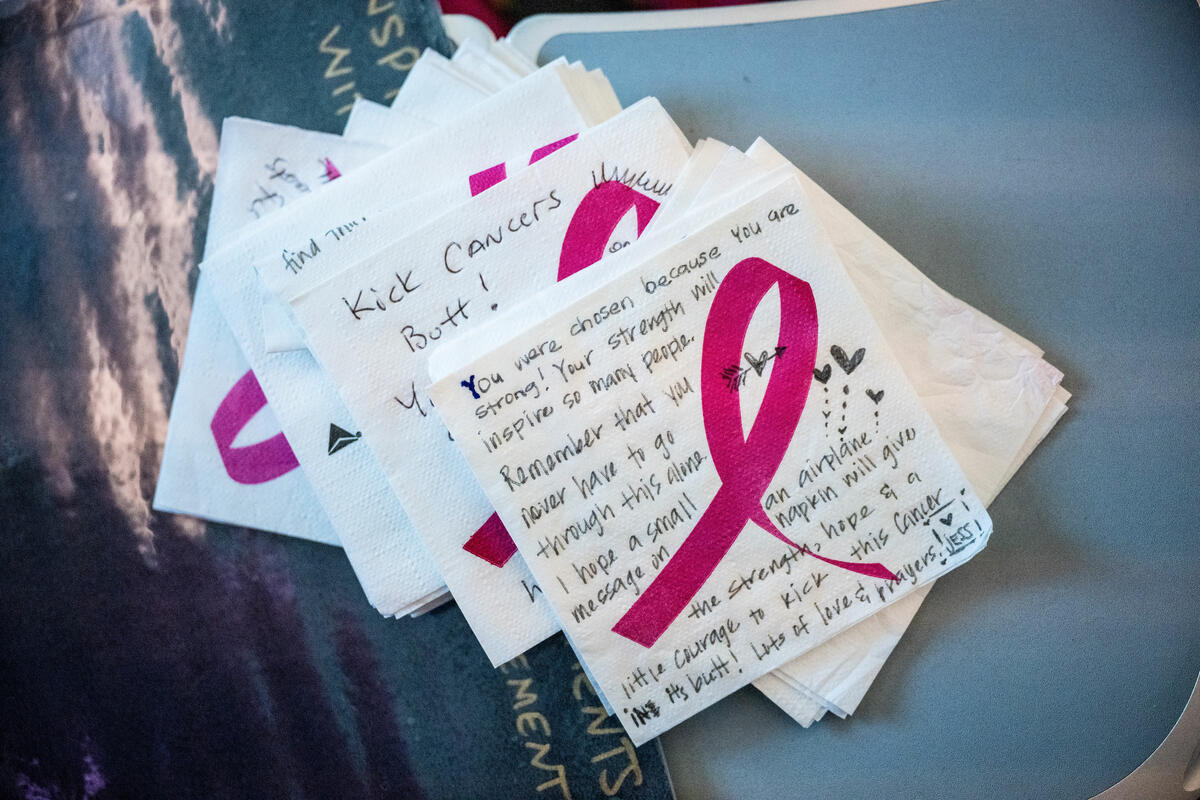 You were chosen because you are
strong! Your strength will
inspire so many people.
Remember that you
never have to go
through this alone.
I hope a small
message on
an airplane
napkin will give
the strength, hope & a
little courage to kick this Cancer
in its butt! Lots of love & prayers! JESS!
Kick Cancers
Butt!
find
EMENT
ENTS